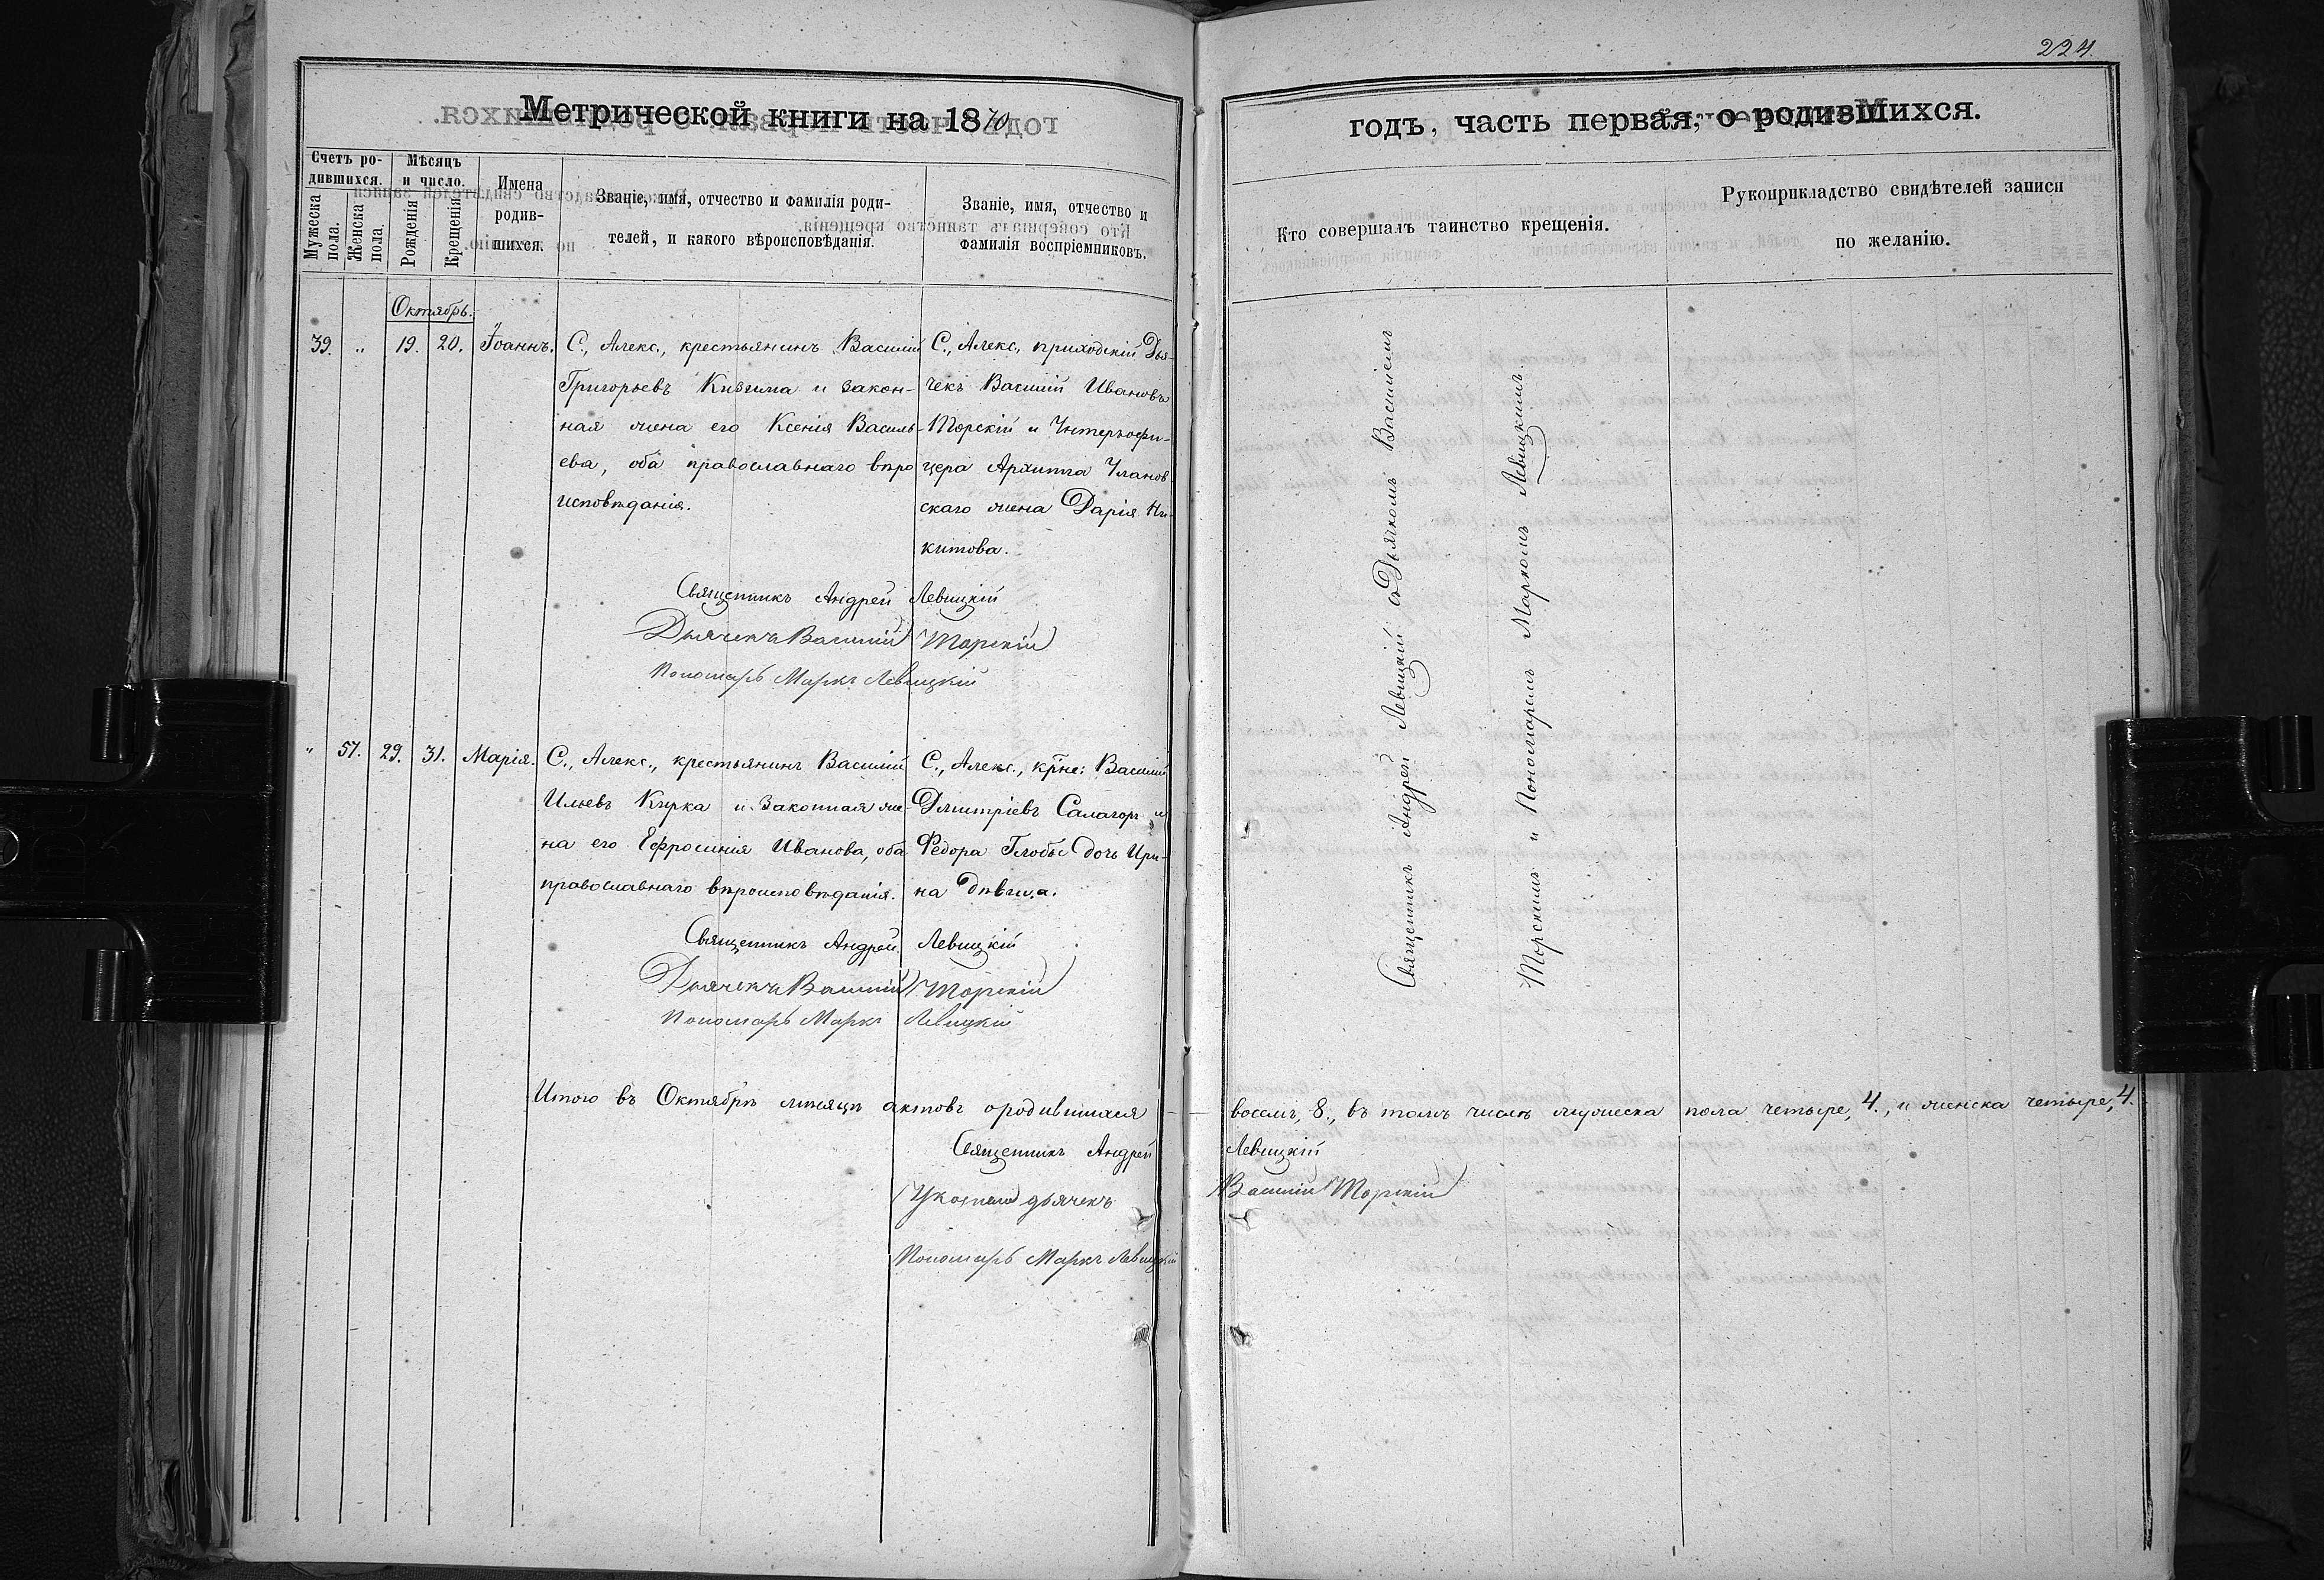 224.
Метрической книги на 1870
годъ, часть первая, о родившихся.
Счетъ ро-
дившихся.
Мужеска
пола.
Женска
пола.
Мѣсяцъ
и число.
Рожденія
Крещенія
Имена
родив-
шихся.
Званіе, имя, отчество и фамилія роди-
телей, и какого вѣроисповѣданія.
Званіе, имя, отчество и
фамилія воспріемниковъ.
Кто совершалъ таинство крещенія.
Рукоприкладство свидѣтелей записи
по желанію.
Октябрь.
39. " 19. 20. Іоаннъ.
С., Алекс., крестьянинъ Василій
Григорьевъ и закон-
ная жена его Ксенія Василь-
ева, оба православнаго вѣро
исповѣданія.
С., Алекс., приходскій Дья-
чекъ Василій Ивановъ
Торскій и Унтеръофи-
цера Архипа Уланов
скаго жена Дарія Ни-
китова.
Священникъ Андрей Левицкій
Дьячекъ Василій Торскій
Пономарь Маркъ Левицкій
" 57. 29. 31. Марія.
С., Алекс., крестьянинъ Василій
Ильевъ Кирка и законная же-
на его Ефросинія Иванова, оба
православнаго вѣроисповѣданія.
С., Алекс., крне: Василій
Дмитріевъ Салагор и
Федора Глобы дочь Ири-
на дѣвица.
Священникъ Андрей Левицкій
Дьячекъ Василій Торскій
Пономарь Маркъ Левицкій
Священникъ Андрей Левицкій съ Дьячкомъ Василіемъ
Торскимъ и Пономаремъ Маркомъ Левицкимъ.
Итого въ Октябрѣ мѣсяцѣ актовъ о родившихся восемь, 8., въ томъ числѣ мужеска пола четыре, 4., и женска четыре, 4.
Священникъ Андрей Левицкій
дьячекъ Василій Торскій
Пономарь Маркъ Левицкій